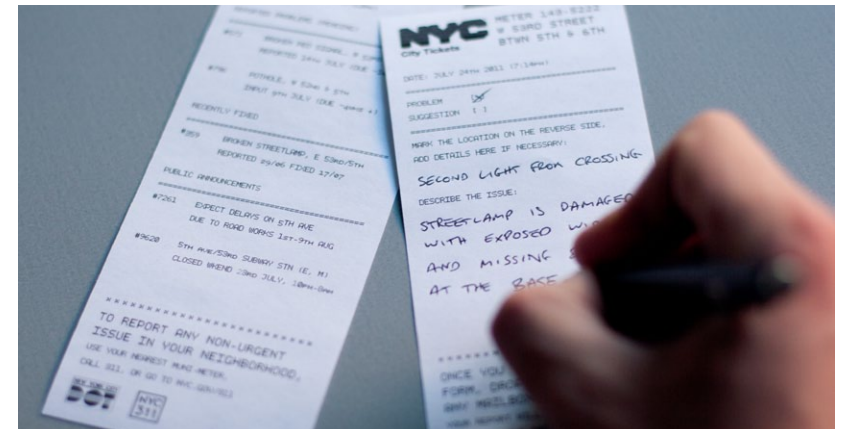 REPORTED PROBLEMS (PENDING)
#371 BROKEN PED SIGNAL,
REPORTED 24TH JULY (DUE
#796 POTHOLE, W 52ND & 5TH
INPUT 9TH JULY (DUE
RECENTLY FIXED
#359 BROKEN STREETLAMP, E 53RD/5TH
REPORTED 29/06 FIXED 17/07
PUBLIC ANNOUNCEMENTS
#7261 EXPECT DELAYS ON 5TH AVE
DUE TO ROAD WORKS 1ST-9TH AUG
#9620 5TH AVE/53RD SUBWAY STN (E, M)
CLOSED WKEND 23RD JULY, 10PM-8AM
TO REPORT ANY NON-URGENT
ISSUE IN YOUR NEIGHBORHOOD,
USE YOUR NEAREST MUNI-METER,
CALL 311, OR GO TO NYC.GOV/311
DOT
NYC
311
NYC
City Tickets
METER 143-5222
W 53RD STREET
BTWN 5TH & 6TH
DATE: JULY 24TH 2011 (7:14PM)
PROBLEM
SUGGESTION [ ]
MARK THE LOCATION ON THE REVERSE SIDE.
ADD DETAILS HERE IF NECESSARY:
SECOND LIGHT FROM CROSSING
DESCRIBE THE ISSUE:
STREETLAMP IS DAMAGED
WITH EXPOSED
AND MISSING
AT THE BASE
ONCE YOU
FORM, DROP
ANY MAILBOX
YOUR REPORT